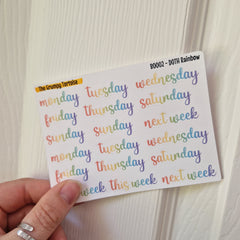 The Grumpy Tortoise
B0002 - DOTW Rainbow
monday tuesday wednesday
friday thursday saturday
sunday sunday next week
monday tuesday wednesday
friday thursday saturday
week this week next week